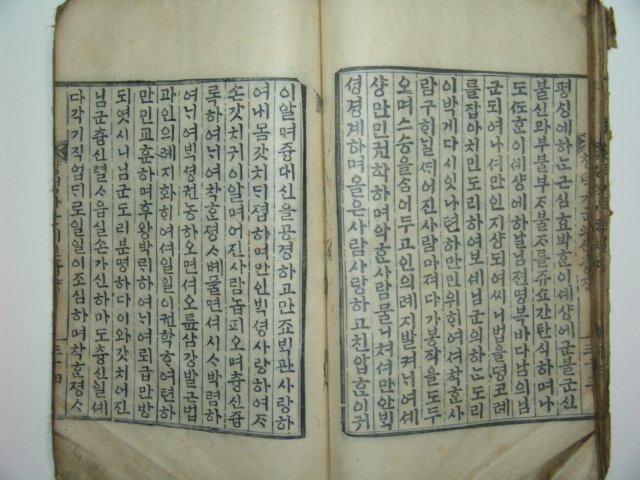 평싱에하는근심효박ᄒᆞᆫ이셰상에군불군신
불신과부불부ᄌᆞ불ᄌᆞ를쥬쇼간탄식하며나
도또ᄒᆞᆫ이셰샹에하날님젼명복바다남의님
군되여나셔만민지샹되여씨니법을뎡코례
를잡아치민도리하여보셰님군의하는도리
이박게다시잇나텬하만민위하여셔착ᄒᆞᆫ사
람구하실졔어진사람마져다가봉작을도두
오며스승을셤어두고인의례지발켜ᄂᆡ여셰
샹만민권학하며악ᄒᆞᆫ사람물니쳐셔만안빅
셩경계하며올은사람사랑하고친압ᄒᆞᆫ이귀
이알며즁대신을공경하고만죠빅관사랑하
여내몸갓치ᄃᆡ졉하며만민빅셩사랑하여ᄌᆞ
손갓치귀이알며어진사람놉피오며츙신즁
록하여ᄂᆡ여착ᄒᆞᆫ졍ᄉᆞ벼풀면셔시ᄉᆞ박렴하
여ᄂᆡ여빅셩권농하오면셔오륜삼강발근법
과인의례지화하여셔일일이권학하여텬하
만민교훈하며후왕박ᄅᆡ하여ᄂᆡ여뢰급만방
되엿시니님군도리분명하다이와갓치어진
님군츙신렬ᄉᆞ읍실손가신하마도츙신일셰
다각기직업ᄃᆡ로일일이조심하며착ᄒᆞᆫ졍ᄉᆞ